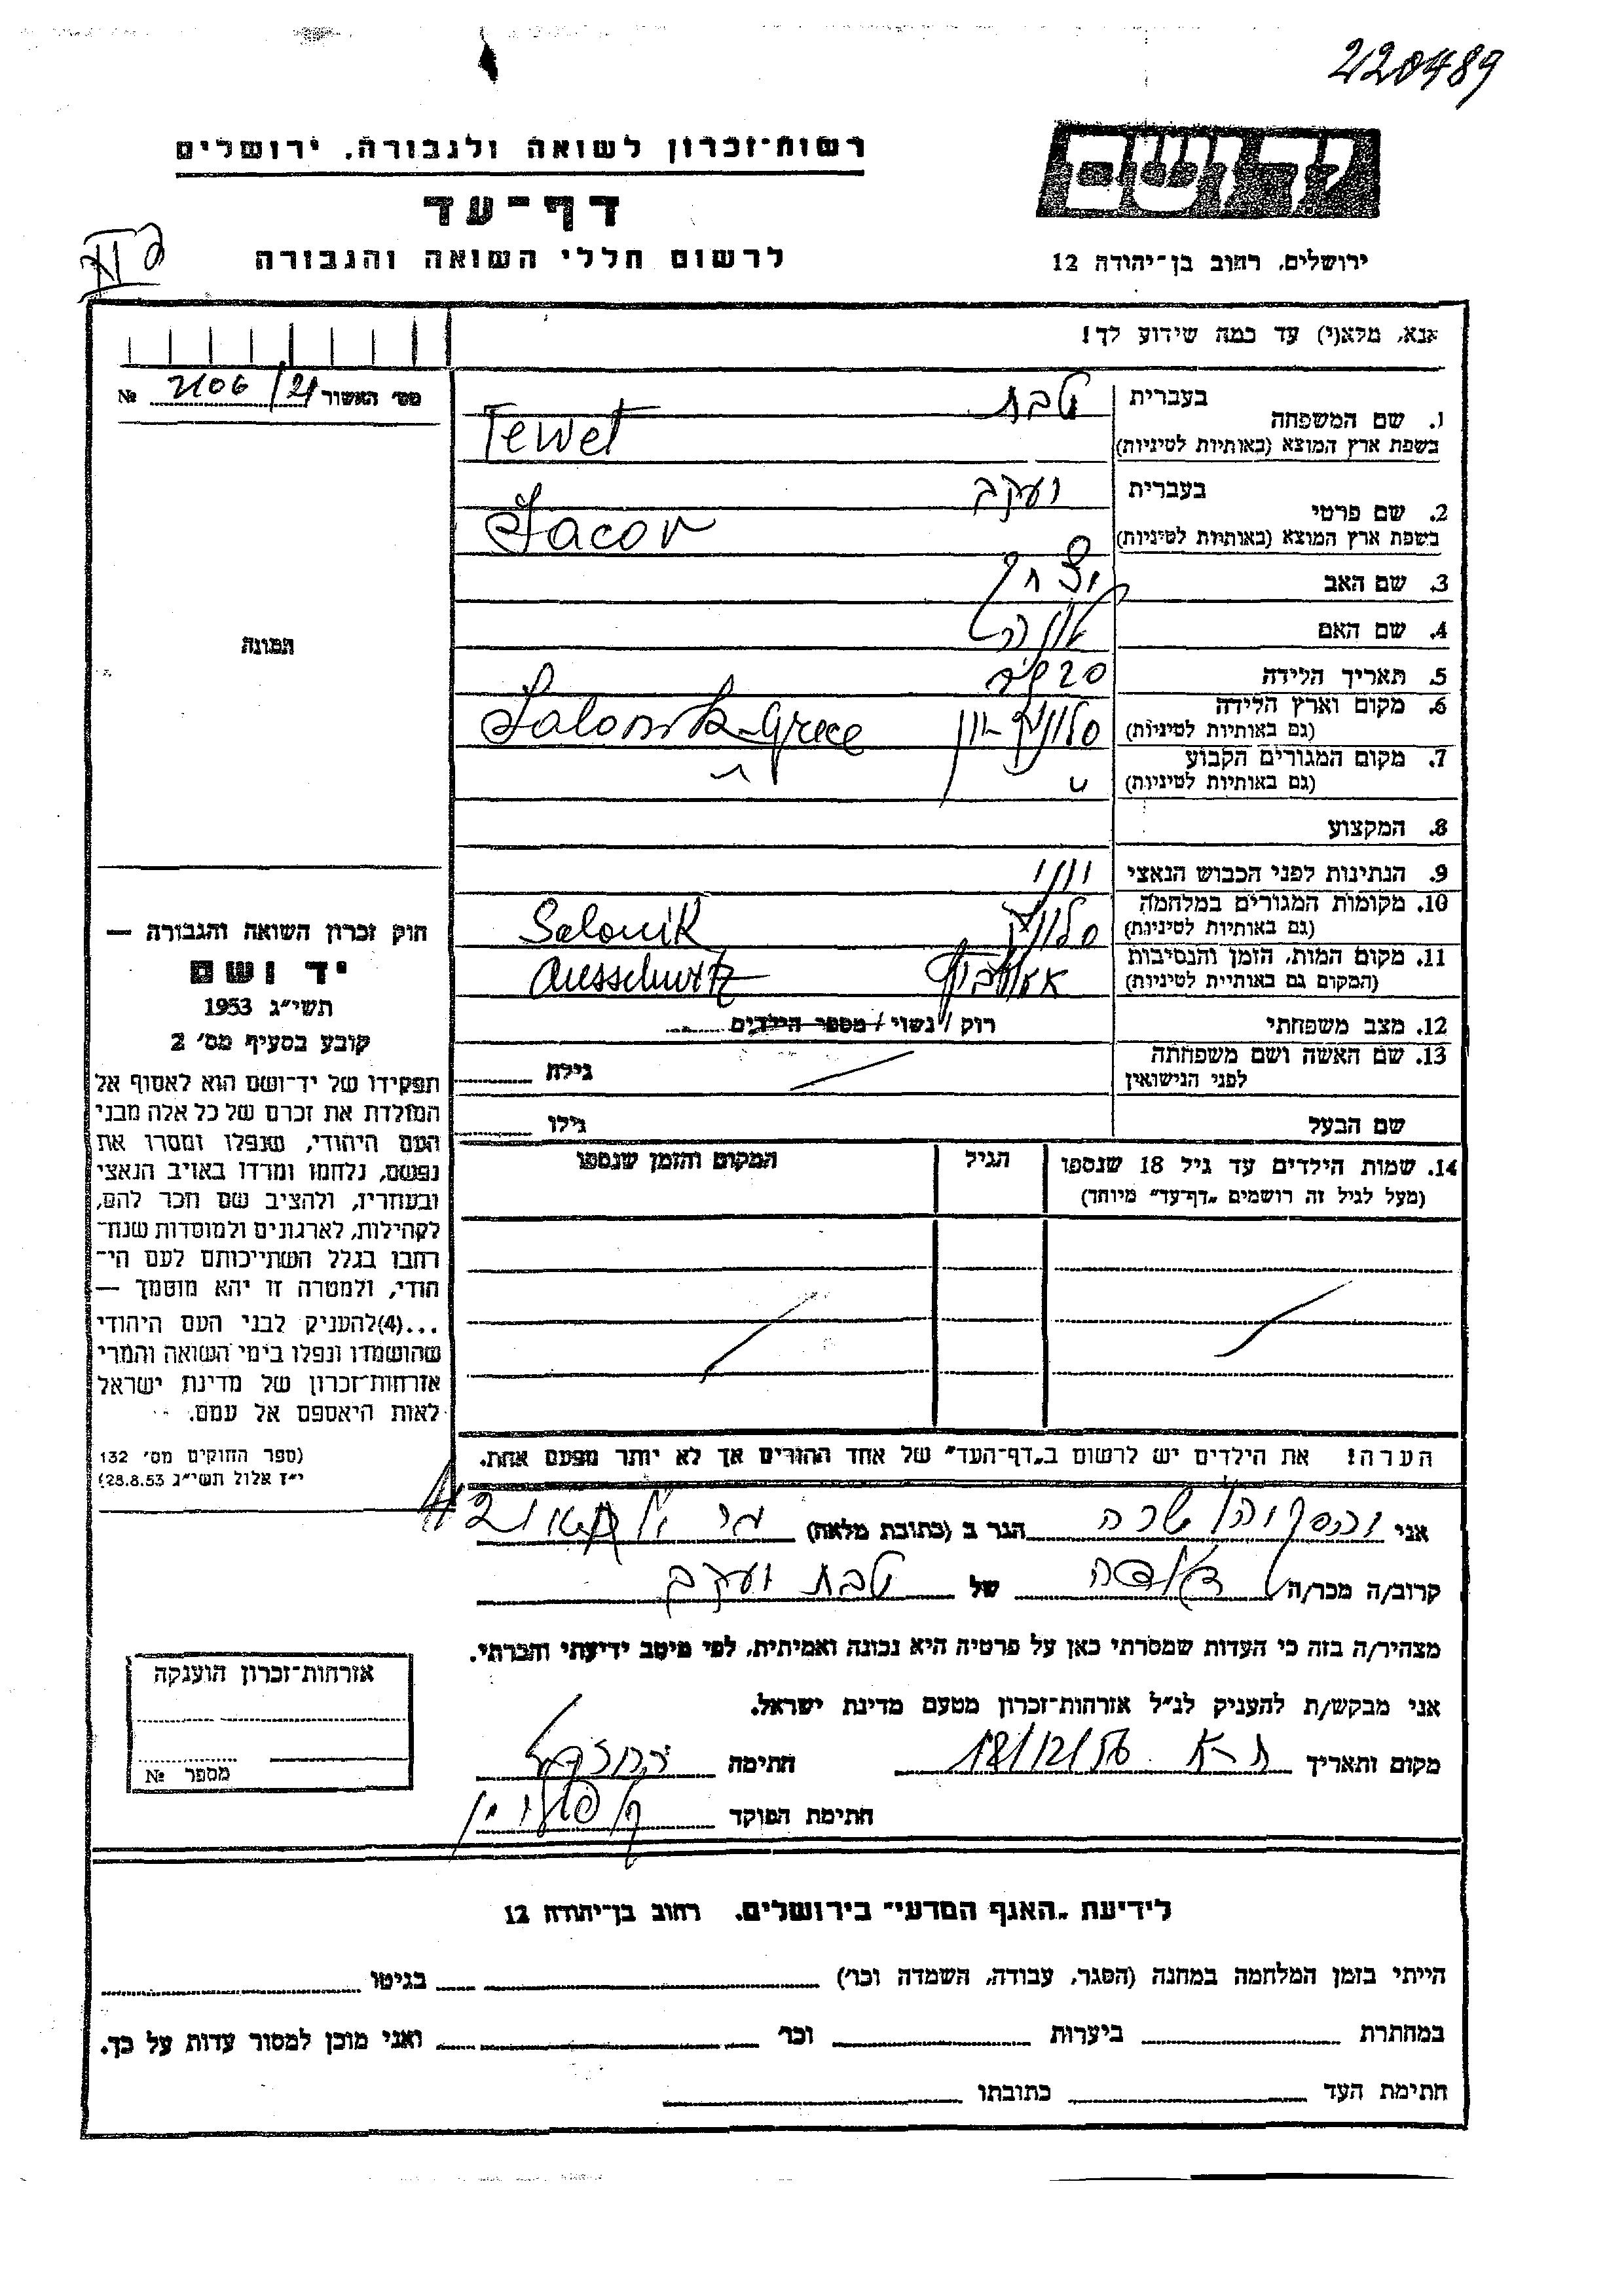 220489
רשות־זכרון לשואה ולגבורה, ירושלים
יד ושם
דף־עד
לרשום חללי השואה והגבורה
ירושלים, רחוב בן־יהודה 12
אנא, מלא(י) עד כמה שידוע לך!
מס׳ האשור 2106/21 №
1. שם המשפחה בעברית טבת
בשפת ארץ המוצא (באותיות לטיניות) Tewet
2. שם פרטי בעברית יעקב
בשפת ארץ המוצא (באותיות לטיניות) Jacov
3. שם האב יצחק
4. שם האם
5. תאריך הלידה 20
6. מקום וארץ הלידה סלוניקי יון Salonik Grece
(גם באותיות לטיניות)
7. מקום המגורים הקבוע
(גם באותיות לטיניות)
8. המקצוע
9. הנתינות לפני הכבוש הנאצי יוני
10. מקומות המגורים במלחמה סלוניקי Salonik
(גם באותיות לטיניות)
11. מקום המות, הזמן והנסיבות אאושביץ Ausschwitz
(המקום גם באותיית לטיניות)
12. מצב משפחתי רוק / נשוי / מספר הילדים
13. שם האשה ושם משפחתה
לפני הנישואין גילה
שם הבעל גילו
14. שמות הילדים עד גיל 18 שנספו הגיל המקום והזמן שנספו
(מעל לגיל זה רושמים „דף־עד” מיוחד)
הערה! את הילדים יש לרשום ב„דף־העד” של אחד ההורים אך לא יותר מפעם אחת.
התמונה
חוק זכרון השואה והגבורה —
יד ושם
תשי״ג 1953
קובע בסעיף מס׳ 2
תפקידו של יד־ושם הוא לאסוף אל
המולדת את זכרם של כל אלה מבני
העם היהודי, שנפלו ומסרו את
נפשם, נלחמו ומרדו באויב הנאצי
ובעוזריו, ולהציב שם וזכר להם,
לקהילות, לארגונים ולמוסדות שנח־
רבו בגלל השתייכותם לעם הי־
הודי, ולמטרה זו יהא מוסמך —
...(4)להעניק לבני העם היהודי
שהושמדו ונפלו בימי השואה והמרי
אזרחות־זכרון של מדינת ישראל
לאות היאספם אל עמם.
(ספר החוקים מס׳ 132
י״ז אלול תשי״ג 28.8.53)
אני שרה הגר ב (כתובת מלאה) 42
קרוב/ה מכר/ה של טבת יעקב
מצהיר/ה בזה כי העדות שמסרתי כאן על פרטיה היא נכונה ואמיתית, לפי מיטב ידיעתי והכרתי.
אני מבקש/ת להעניק לנ״ל אזרחות־זכרון מטעם מדינת ישראל.
מקום ותאריך ת־א 18/12/56 חתימה
חתימת הפוקד
אזרחות־זכרון הוענקה
מספר №
לידיעת „האגף המדעי” בירושלים, רחוב בן־יהודה 12
הייתי בזמן המלחמה במחנה (הסגר, עבודה, השמדה וכר׳) בגיטו
במחתרת ביערות וכר׳ ואני מוכן למסור עדות על כך.
חתימת העד כתובתו